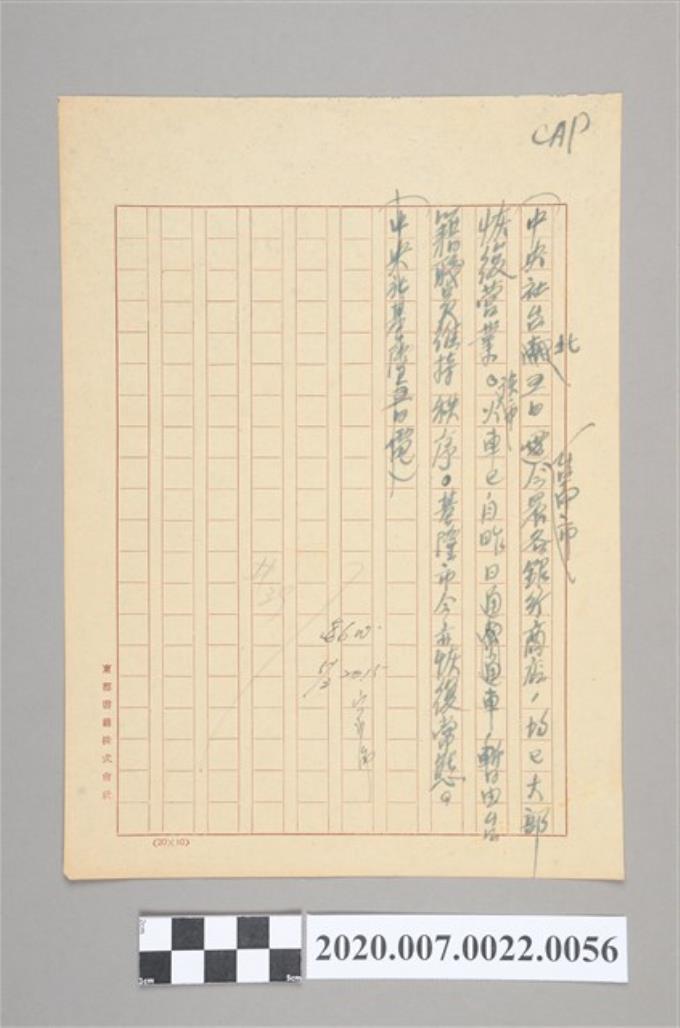 CAP
（中央社台北五日電）今晨各銀行商店，均已大部
恢復營業。火車已自昨日通車，暫由台
籍職員維持秩序。基隆市今亦恢復常態。
（中央社基隆五日電）
20.15
東都書籍株式會社
(20×10)
2020.007.0022.0056
0cm
5cm